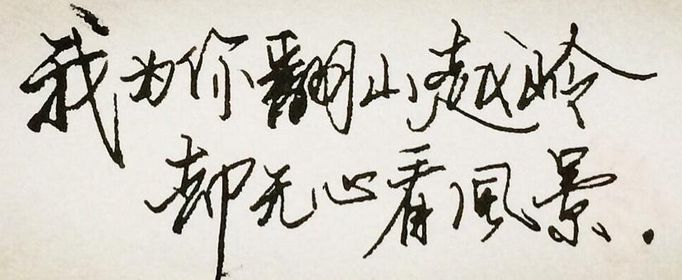 我为你翻山越岭
却无心看风景.